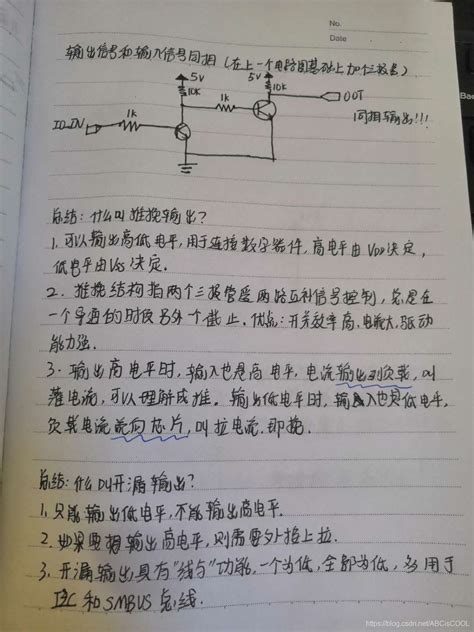 No.
Date
输出信号和输入信号同相 (在上一个电路图基础上加个三极管)
5V 5V
10K 10K
1k 1k
IO_IN OUT
同相输出!!!
总结: 什么叫推挽输出?
1. 可以输出高低电平, 用于连接数字器件, 高电平由VDD决定,
低电平由Vss决定.
2. 推挽结构指两个三极管受两路互补信号控制, 总是在
一个导通的时候另外一个截止. 优点: 开关效率高, 电流大, 驱动
能力强.
3. 输出高电平时, 输入也是高电平, 电流输出到负载, 叫
灌电流, 可以理解成推. 输出低电平时, 输入也是低电平,
负载电流流向芯片, 叫拉电流. 即挽.
总结: 什么叫开漏输出?
1. 只能输出低电平, 不能输出高电平.
2. 如果要想输出高电平, 则需要外接上拉.
3. 开漏输出具有"线与"功能, 一个为低, 全部为低, 多用于
I2C 和 SMBUS 总线.
https://blog.csdn.net/ABCisCOOL